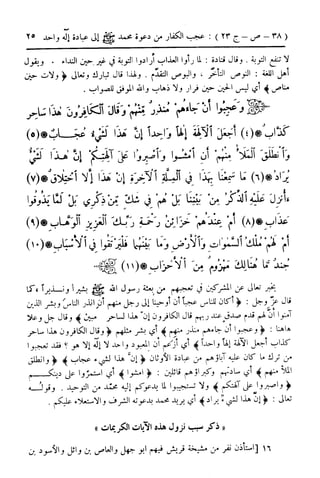 (٣٨ – ص – ج ٢٣) : عجب الكفار من دعوة محمد ﷺ إلى عبادة إلٰه واحد ٢٥
لا تنفع التوبة . وقال قتادة : لما رأوا العذاب أرادوا التوبة في غير حين النداء . ويقول
أهل اللغة : النوص التأخر ، والبوص التقدّم . ولهذا قال تبارك وتعالى ﴿ ولات حين
مناص ﴾ أي ليس الحين حين فرار ولا ذهاب والله الموفق للصواب .
وَعَجِبُوٓا۟ أَن جَآءَهُم مُّنذِرٌ مِّنْهُمْ وَقَالَ ٱلْكَٰفِرُونَ هَٰذَا سَٰحِرٌ
كَذَّابٌ ﴿٤﴾ أَجَعَلَ ٱلْءَالِهَةَ إِلَٰهًا وَٰحِدًا إِنَّ هَٰذَا لَشَىْءٌ عُجَابٌ ﴿٥﴾
وَٱنطَلَقَ ٱلْمَلَأُ مِنْهُمْ أَنِ ٱمْشُوا۟ وَٱصْبِرُوا۟ عَلَىٰٓ ءَالِهَتِكُمْ إِنَّ هَٰذَا لَشَىْءٌ
يُرَادُ ﴿٦﴾ مَا سَمِعْنَا بِهَٰذَا فِى ٱلْمِلَّةِ ٱلْءَاخِرَةِ إِنْ هَٰذَآ إِلَّا ٱخْتِلَٰقٌ ﴿٧﴾
أَءُنزِلَ عَلَيْهِ ٱلذِّكْرُ مِنۢ بَيْنِنَا بَلْ هُمْ فِى شَكٍّ مِّن ذِكْرِى بَل لَّمَّا يَذُوقُوا۟
عَذَابِ ﴿٨﴾ أَمْ عِندَهُمْ خَزَآئِنُ رَحْمَةِ رَبِّكَ ٱلْعَزِيزِ ٱلْوَهَّابِ ﴿٩﴾
أَمْ لَهُم مُّلْكُ ٱلسَّمَٰوَٰتِ وَٱلْأَرْضِ وَمَا بَيْنَهُمَا فَلْيَرْتَقُوا۟ فِى ٱلْأَسْبَٰبِ ﴿١٠﴾
جُندٌ مَّا هُنَالِكَ مَهْزُومٌ مِّنَ ٱلْأَحْزَابِ ﴿١١﴾
يخبر تعالى عن المشركين في تعجبهم من بعثة رسول الله ﷺ بشيراً ونذيراً كما
قال عزّ وجل : ﴿ أكان للناس عجباً أن أوحينا إلى رجل منهم أن أنذر الناس وبشر الذين
آمنوا أن لهم قدم صدق عند ربهم قال الكافرون إن هذا لساحر مبين ﴾ وقال جل وعلا
هاهنا : ﴿ وعجبوا أن جاءهم منذر منهم ﴾ أي بشر مثلهم ﴿ وقال الكافرون هذا ساحر
كذاب أجعل الآلهة إلٰهاً واحداً ﴾ أي أزعم أن المعبود واحد لا إلٰه إلا هو ؟ فقد تعجبوا
من ترك ما كان عليه آباؤهم من عبادة الأوثان ﴿ إن هذا لشيء عجاب ﴾ ﴿ وانطلق
الملأ منهم ﴾ أي سادتهم وكبراؤهم قائلين : ﴿ امشوا ﴾ أي استمرّوا على دينكم
﴿ واصبروا على آلهتكم ﴾ ولا تستجيبوا لما يدعوكم إليه محمّد من التوحيد . وقوله
تعالى : ﴿ إنّ هذا لشيءٌ يراد ﴾ أي يريد محمد بدعوته الشرف والاستعلاء عليكم .
« ذكر سبب نزول هذه الآيات الكريمات »
١٦ [ استأذن نفر من مشيخة قريش فيهم ابو جهل والعاص بن وائل والأسود بن